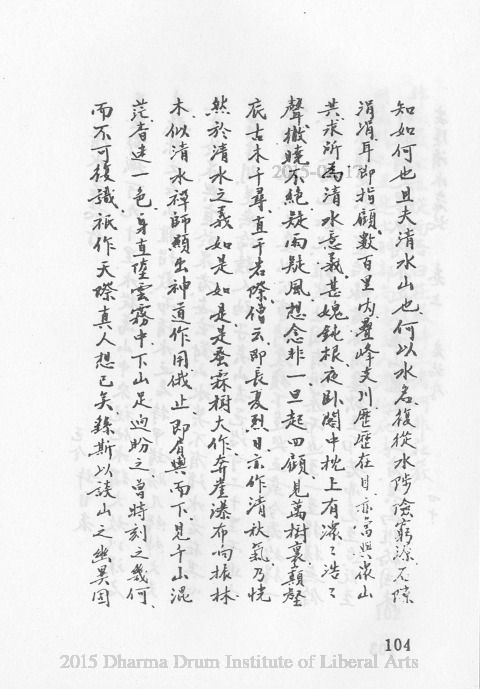 知如何也且夫清水山也何以水名復從水陟險窮源石隙
涓涓耳即指顧數百里内疊峰支川歷歷在目亦當與衆山
共求所為清水意義甚媿鈍根夜卧閣中枕上有濃濃浩浩
聲撤曉不絕疑雨疑風想念非一旦起四顧見萬樹裏顛壑
底古木千尋直干岩際僧云即長夏烈日亦作清秋氣乃恍
然於清水之義如是如是是蚤霖樹大作奔崖瀑布响振林
木似清水禪師顯出神道作用俄止即肩輿而下見千山混
茫杳迷一色身直墮雲霧中下山足迴盼之曾時刻之幾何
而不可復識祇作天際真人想已矣繇斯以談山之幽異因
104
2015 Dharma Drum Institute of Liberal Arts